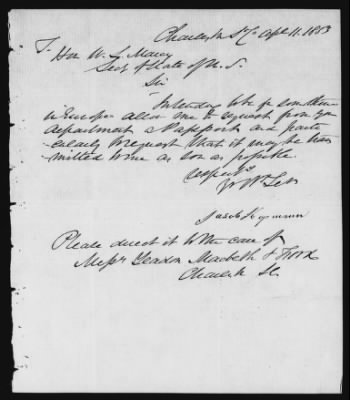 Charleston So Ca Apl 11. 1853
To
Hon W. L. Marcy
Secy of State of U. S.
Sir
Intending to be for some time
in Europe allow me to request from your
department a Passport and parti-
cularly to request that it may be trans-
mitted to me as soon as possible.
Respecty
Jacob Heymann
Please direct it to the care of
Messrs Yeadon Macbeth &
Charleston So.